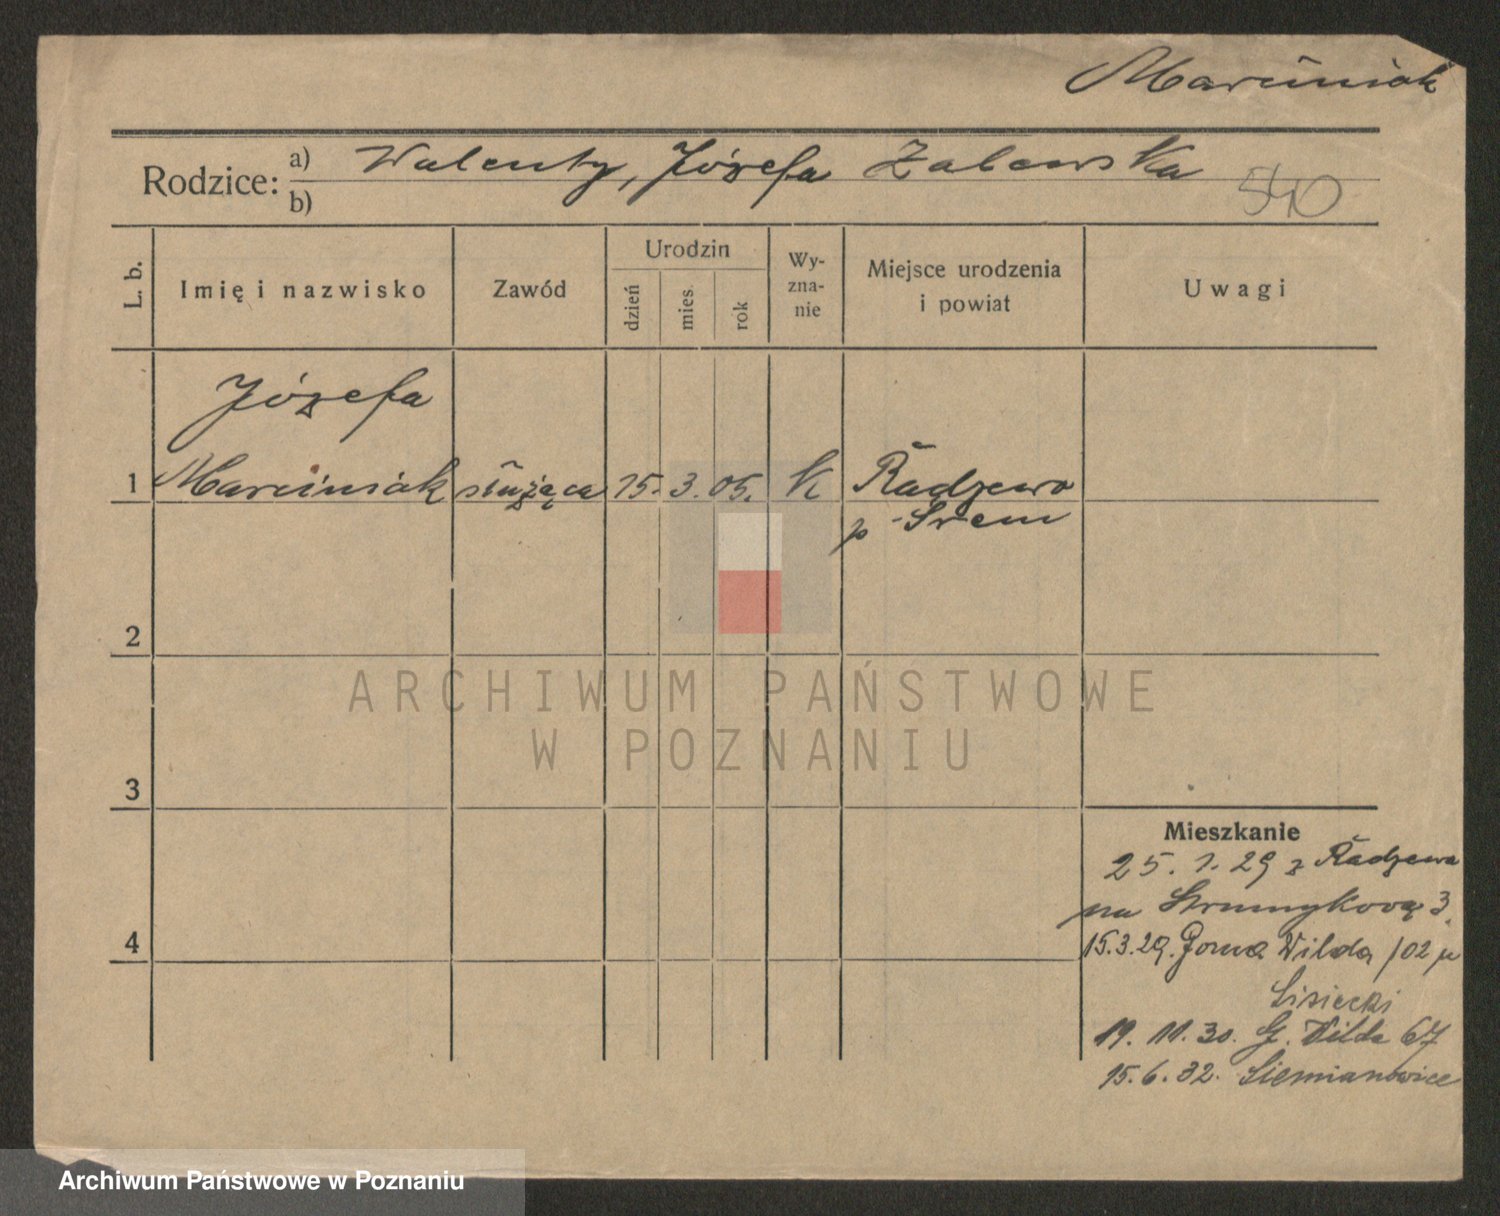 Marciniak
Rodzice: a) Walenty, Józefa Zalewska
b)
540
L. b.
Imię i nazwisko
Zawód
Urodzin
dzień
mies.
rok
Wy-
zna-
nie
Miejsce urodzenia
i powiat
Uwagi
Józefa
1 Marciniak służąca 15. 3. 05. K Radzewo
p Śrem
2
ARCHIWUM PAŃSTWOWE
W POZNANIU
3
Mieszkanie
25. 1. 29 z Radzewa
na Strumykową 3.
4
15.3.29. Górna Wilda 102 u
Lisiecki
19. 11. 30. G. Wilda 67
15. 6. 32. Siemianowice
Archiwum Państwowe w Poznaniu